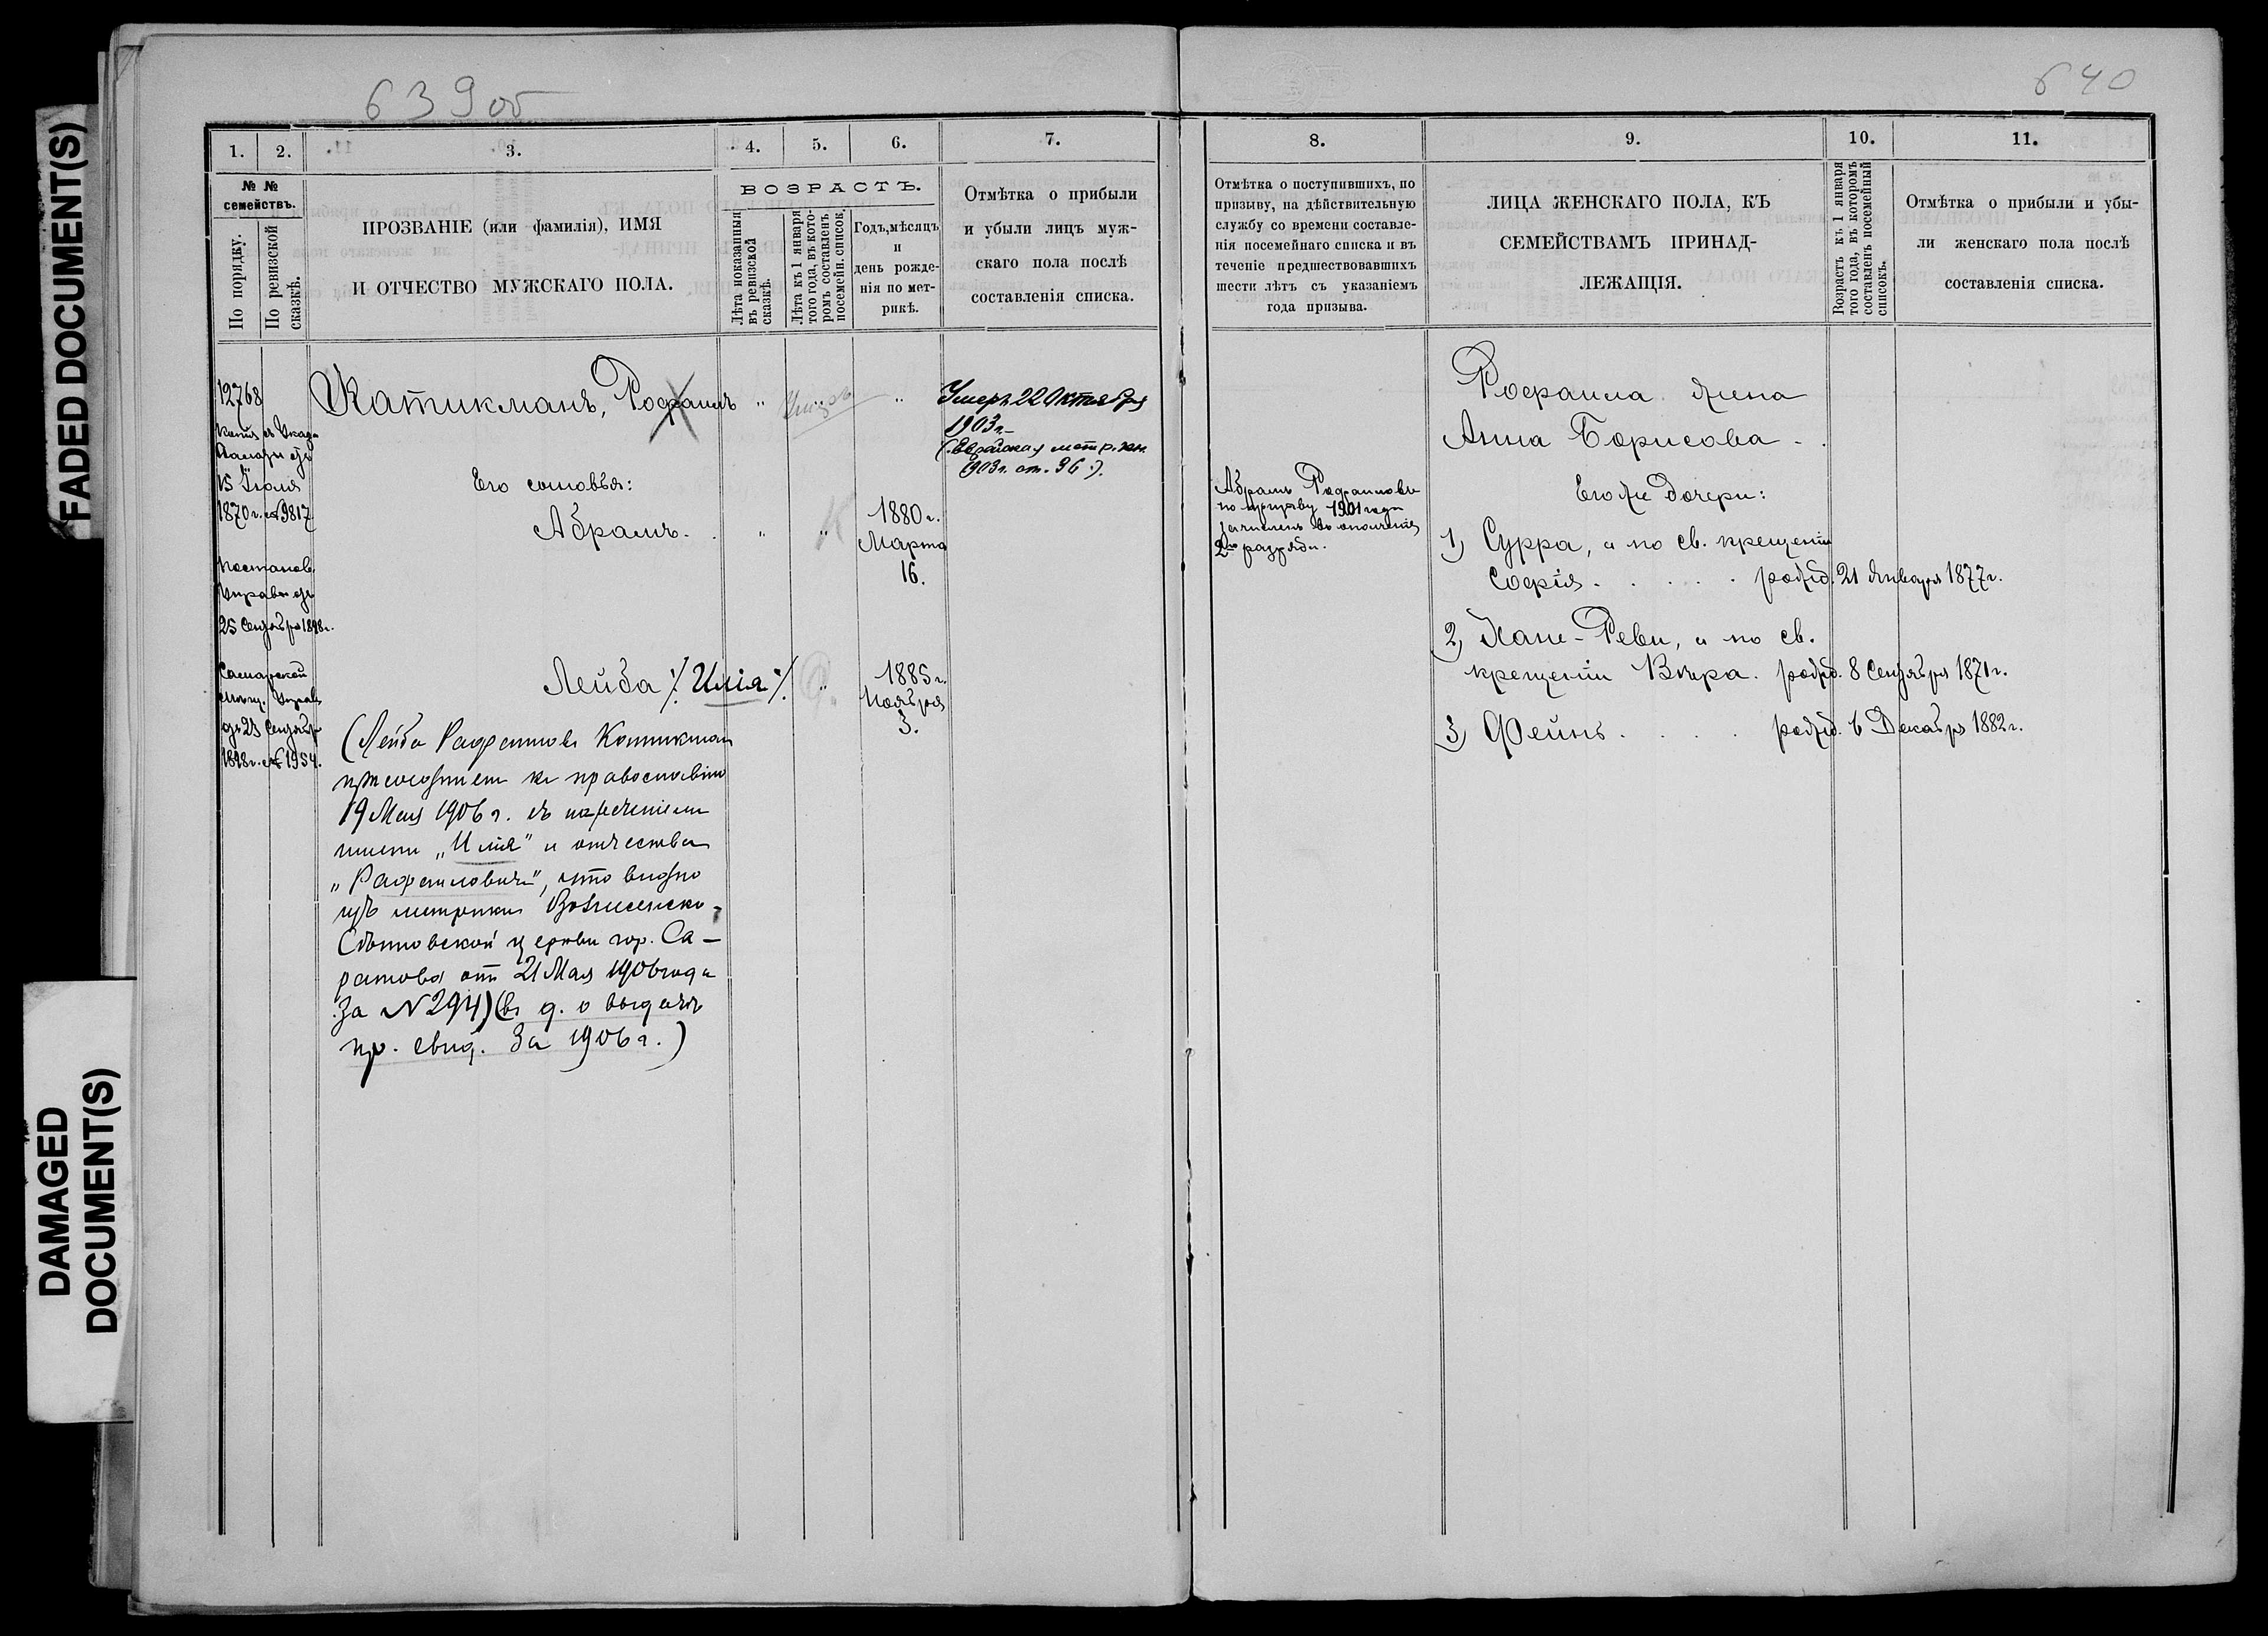 FADED DOCUMENT(S)
DAMAGED
DOCUMENT(S)
639 об
1. 2. 3. 4. 5. 6. 7.
№ №
семействъ.
По порядку.
По ревизской
сказкѣ.
ПРОЗВАНІЕ (или фамилія), ИМЯ
И ОТЧЕСТВО МУЖСКАГО ПОЛА.
ВОЗРАСТЪ.
Лѣта показанныя
въ ревизской
сказкѣ.
Лѣта къ 1 января
того года, въ кото-
ромъ составленъ
посемейн. список.
Годъ, мѣсяцъ
и
день рожде-
нія по мет-
рикѣ.
Отмѣтка о прибыли
и убыли лицъ муж-
скаго пола послѣ
составленія списка.
12768
15 Іюля
1870 г. № 9817
Постанов.
Управы отъ
25 Сентября 1898 г.
Самарской
Управы
отъ 23 Сентября
1898 г. № 1954.
Катикманъ, Рафаилъ " " "
Умеръ 22 Октября
1903 г.
(Еврейская метр. кн.
1903 г. ст. 36).
Его сыновья:
Абрамъ. " "
1880 г.
Марта
16.
Лейба /. Илія ./ "
1885 г.
Ноября
3.
(Лейба Рафаиловъ Катикман
присоединен къ православію
19 Мая 1906 г. съ наречениемъ
имени „Илія" и отчества
„Рафаиловичъ", что видно
изъ метрики Вознесенско-
Сѣнновской церкви гор. Са-
ратова от 21 Мая 1906 года
за № 294) (въ д. о выдачѣ
пр. свид. за 1906 г.)
640
8. 9. 10. 11.
Отмѣтка о поступившихъ, по
призыву, на дѣйствительную
службу со времени составле-
нія посемейнаго списка и въ
теченіе предшествовавшихъ
шести лѣтъ съ указаніемъ
года призыва.
ЛИЦА ЖЕНСКАГО ПОЛА, КЪ
СЕМЕЙСТВАМЪ ПРИНАД-
ЛЕЖАЩІЯ.
Возрастъ къ 1 января
того года, въ которомъ
составленъ посемейный
списокъ.
Отмѣтка о прибыли и убы-
ли женскаго пола послѣ
составленія списка.
Абрамъ Рафаиловъ
по призыву 1901 года
зачисленъ въ ополченіе
2го разряда.
Рафаила жена
Анна Борисова.
Его же дочери:
1) Сурра, а по св. крещеніи
Софія . . . . . рожд. 21 Января 1877 г.
2) Хане-Реви, а по св.
крещеніи Вѣра. рожд. 8 Сентября 1871 г.
3) Фейнъ . . . . рожд. 6 Декабря 1882 г.